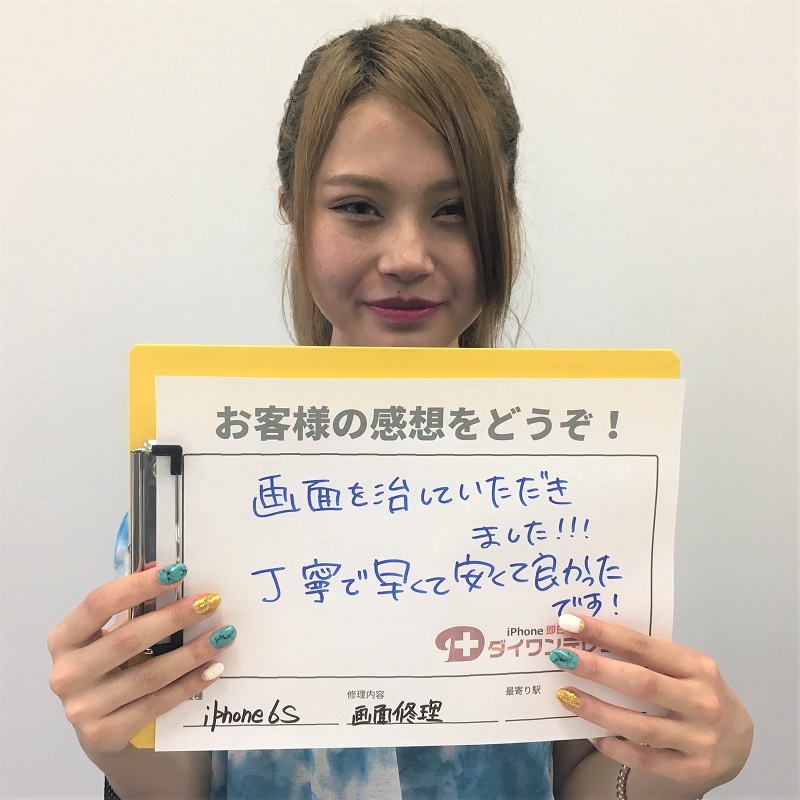 お客様の感想をどうぞ！
画面を治していただき
ました!!!
丁寧で早くて安くて良かった
です!
iPhone 即日
ダイワンテレ
機種 修理内容 最寄り駅
iphone6S 画面修理